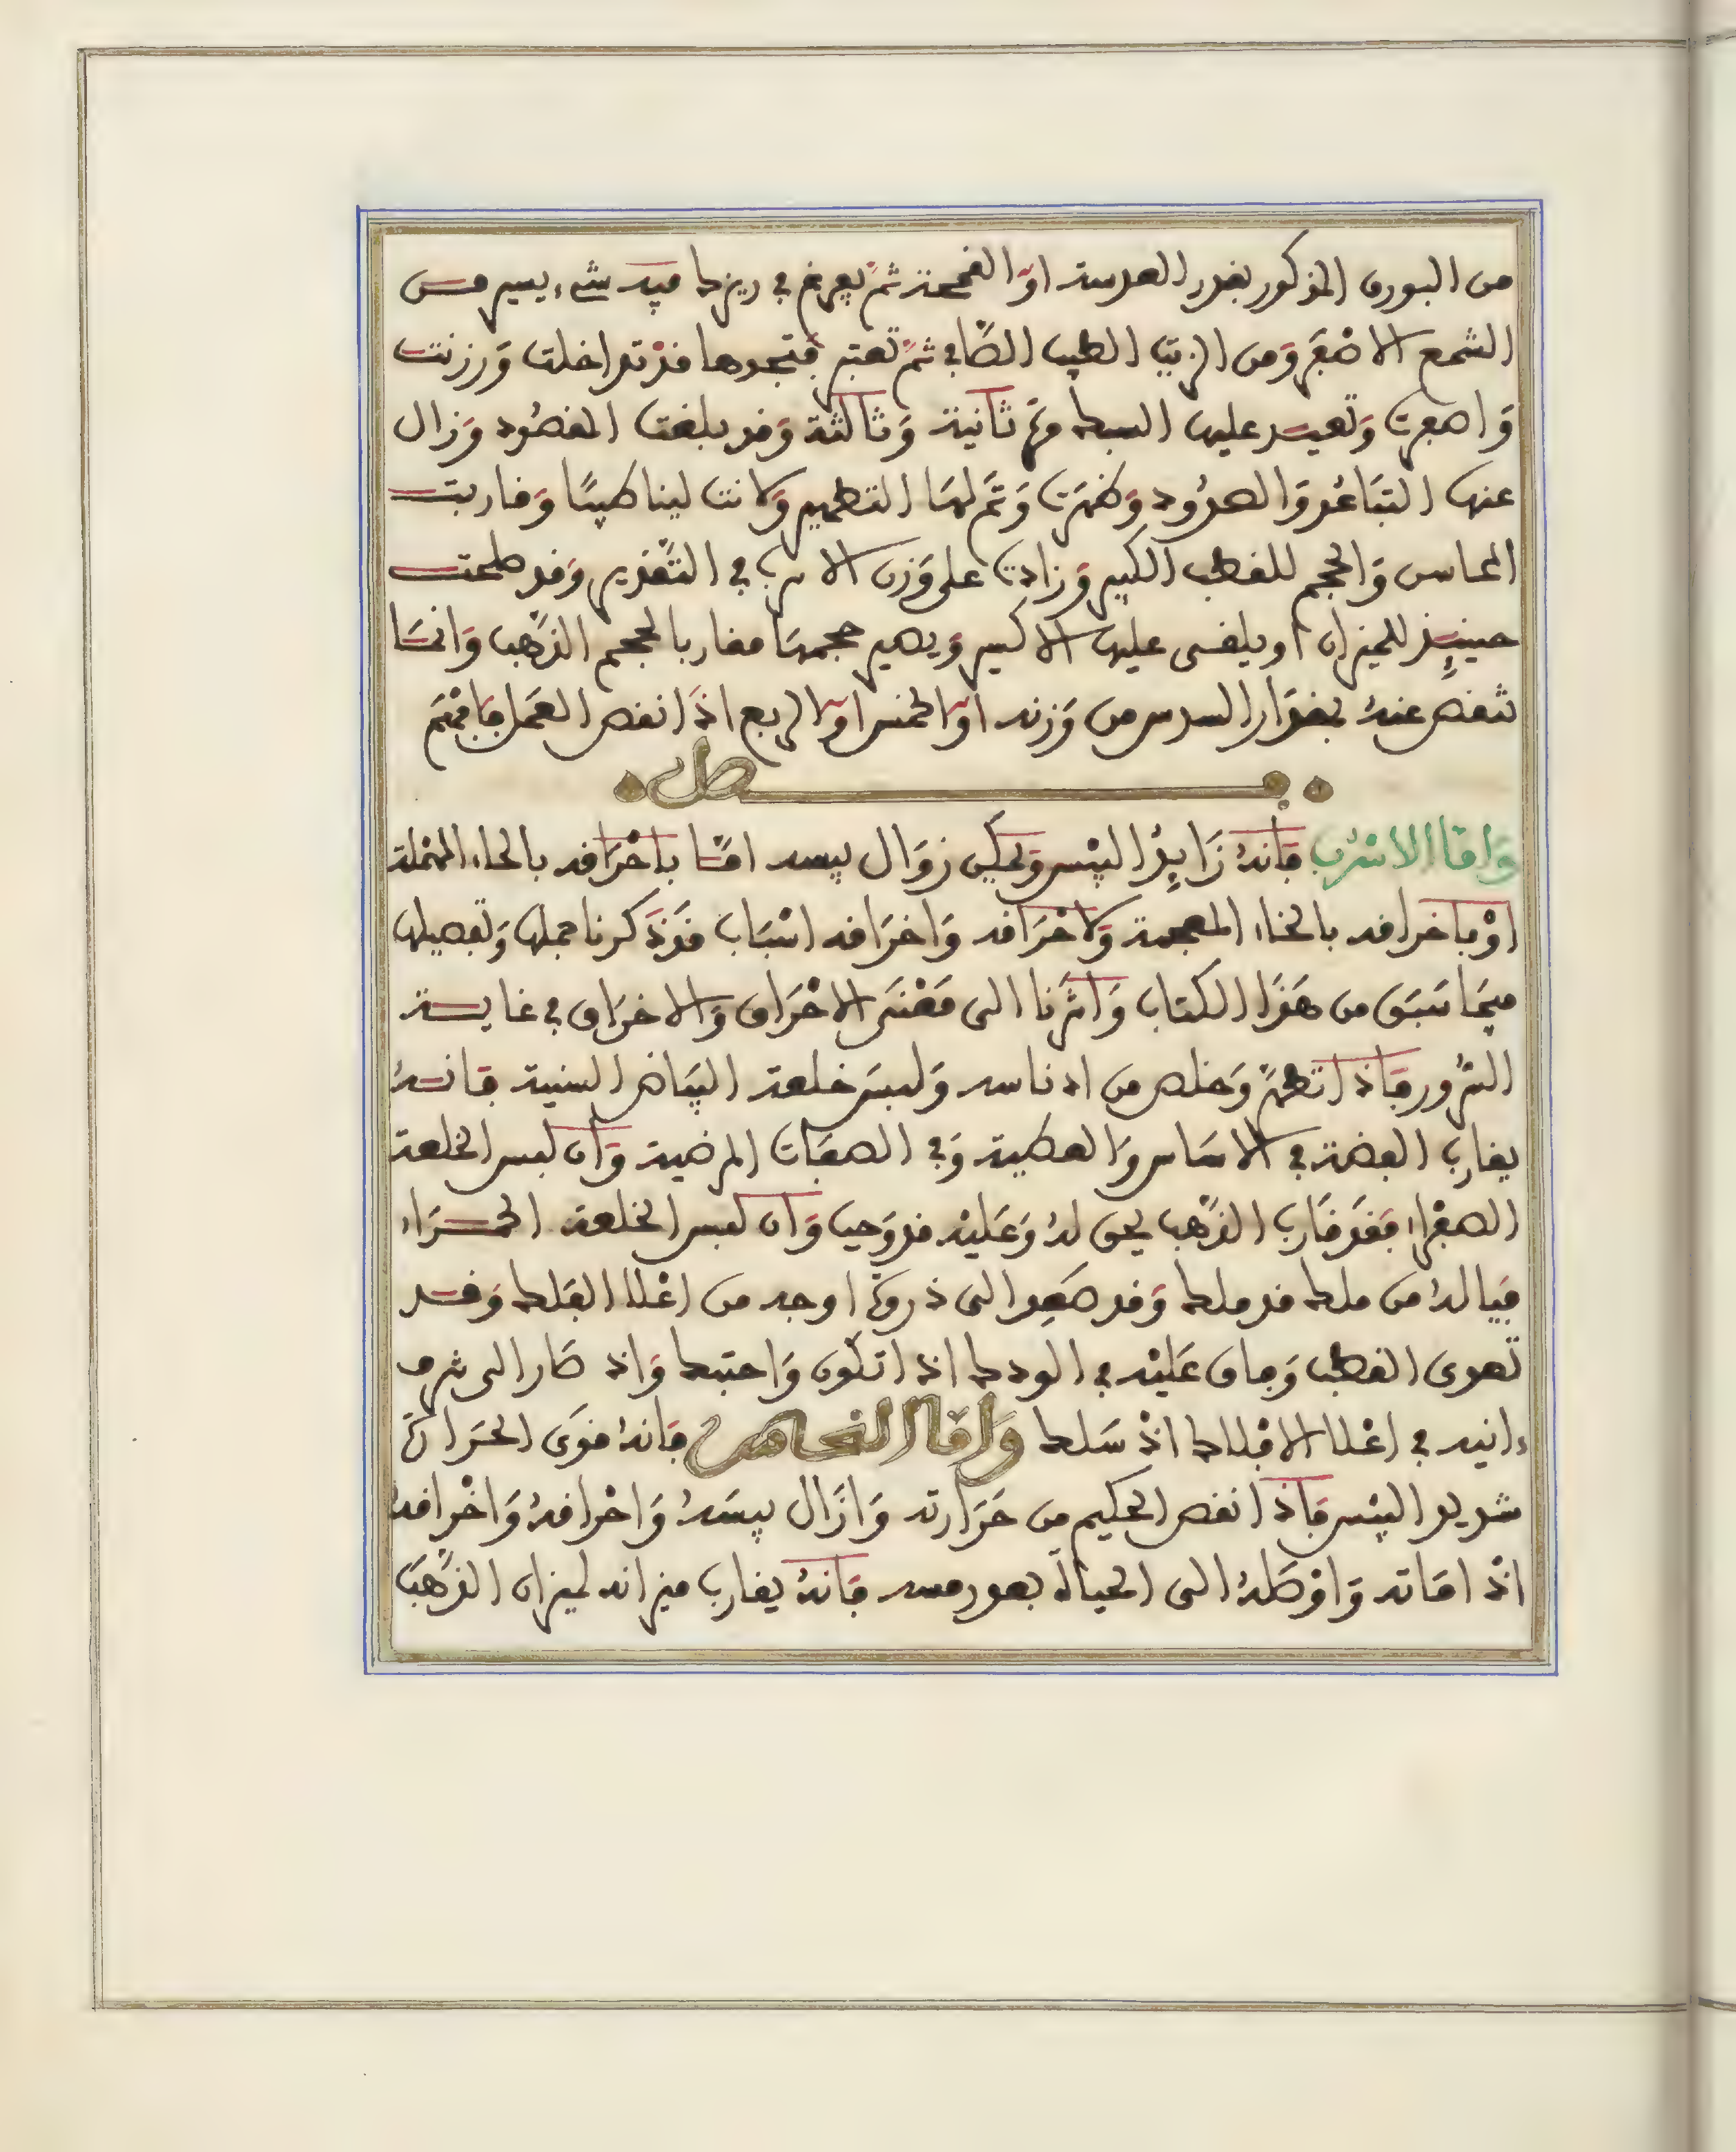 من البورق المذكور بقدر العدسة او القمحة ثم يفرغ في ريزك فيه شيء يسير من
الشمع الاصفر ومن الزيت الطيب الصافي ثم تعتبر فتجدها قد تداخلت ورزنت
واصفرت وتعيد عليها السبك مرة ثانية وثالثة وقد بلغت المقصود وزال
عنها التباعد والصدود وطهرت وتم لها التطهير وكانت لينا طيبا وقاربت
المحاسن والحجم للقطب الكبير وزادت على وزن الاسرب في التقدير وقد صلحت
حينئذ للميزان او يلقى عليها الاكسير ويصير حجمها مقاربا لحجم الذهب وانما
تنقص عنه بمقدار السدس من وزنه او الخمس او الربع اذا نقص العمل فافهم
فصل
واما الاسرب فانه زايد اليبس ويمكن زوال يبسه اما باحراقه بالحاء المهملة
او باخراقه بالخاء المعجمة ولاحراقه واخراقه اسباب قد ذكرنا جملها وتفصيلها
فيما سبق من هذا الكتاب واشرنا الى معنى الاحراق والاخراق في غاية
السرور فاذا تطهر وخلص من ادناسه ولبس خلعة البياض السنية فانه
يقارب الفضة في الاساس والعطية وفي الصفات المرضية وان لبس الخلعة
الصفرا فقد قارب الذهب بحق له وعليه قد وجب وان لبس الخلعة الحمراء
فياله من ملك قد ملك وقد صعد الى ذروة اوجه من اعلا الفلك وقد
تعوى القطب وفاق عليه في الودك اذا تكون واحتبك واذ صار الى شرف
ءانيه في اعلا الافلاك اذ سلك واما النحاس فانه قوى الحرارة
شديد اليبس فاذا نقص الحكيم من حرارته وازال يبسه واحراقه واخراقه
اذ اماته واوصله الى الحياة بعد رمسه فانه يقارب ميزانه لميزان الذهب